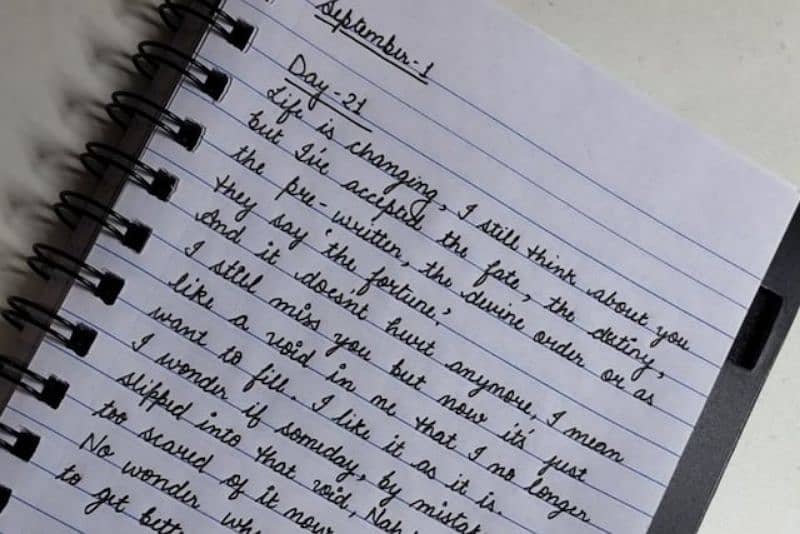 September-1
Day-21
Life is changing, I still think about you
but I've accepted the fate, the destiny,
the pre-written, the devine order or as
they say 'the fortune'.
And it doesn't hurt anymore, I mean
I still miss you but now it's just
like a void in me that I no longer
want to fill. I like it as it is.
I wonder if someday, by mistak
slipped into that void, Nah
too scared of it now
No wonder why
to get bette